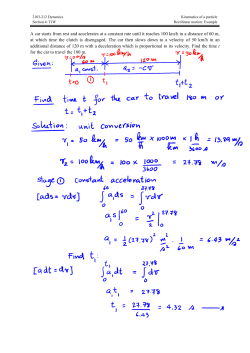 2103-212 Dynamics Kinematics of a particle
Section 6: TJW Rectilinear motion: Example
A car starts from rest and accelerates at a constant rate until it reaches 100 km/h in a distance of 60 m,
at which time the clutch is disengaged. The car then slows down to a velocity of 50 km/h in an
additional distance of 120 m with a deceleration which is proportional to its velocity. Find the time t
for the car to travel the 180 m.
Given: 60 m 120 m
a, const a₂ = -cv
t=0 ① t₁ t₁+t₂
Find time t for the car to travel 180 m or
t = t₁+t₂
Solution: unit conversion
= 50 km/h = 50 km/h × 1000 m/km × 1 h/3600 s = 13.89 m/s
v₂ = 100 km/h = 100 × 1000/3600 = 27.78 m/s
Stage ① constant acceleration
[ads = vdv] ∫₀⁶⁰ a₁ds = ∫₀²⁷·⁷⁸ vdv
a₁s|₀⁶⁰ = v²/2|₀²⁷·⁷⁸
a₁ = ½(27.78)² m²/s² · 1/60 m = 6.43 m/s²
Find t₁
[adt = dv] ∫₀^t₁ a₁dt = ∫₀²⁷·⁷⁸ dv
a₁t₁ = 27.78
t₁ = 27.78/6.43 = 4.32 s